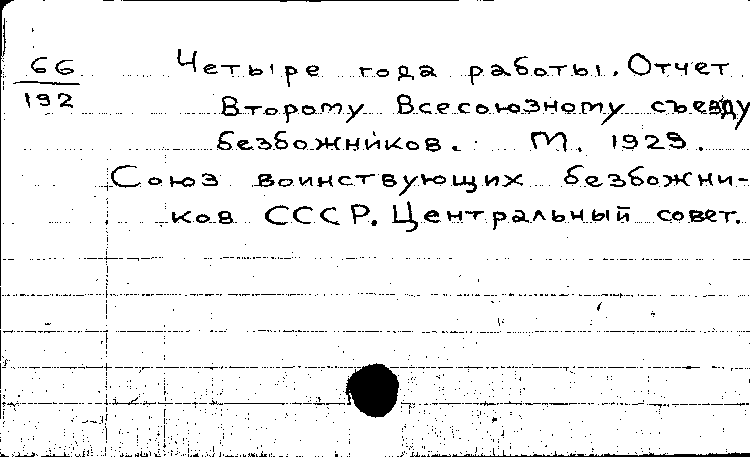 66 Четыре года работы. Отчет
192 Второму Всесоюзному съезду
безбожников. М. 1929.
Союз воинствующих безбожни-
ков СССР. Центральный совет.